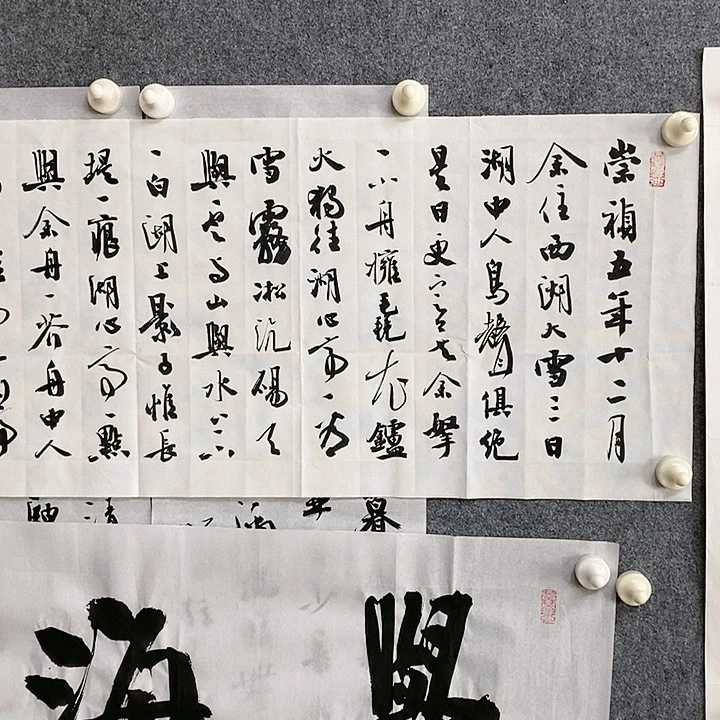 崇禎五年十二月
余住西湖大雪三日
湖中人鳥聲俱絕
是日更定矣余拏
一小舟擁毳衣鑪
火獨往湖心亭一看
雪霧凇沆碭天
與雲与山與水上下
一白湖上影子惟長
堤一痕湖心亭一點
與余舟一芥舟中人
海